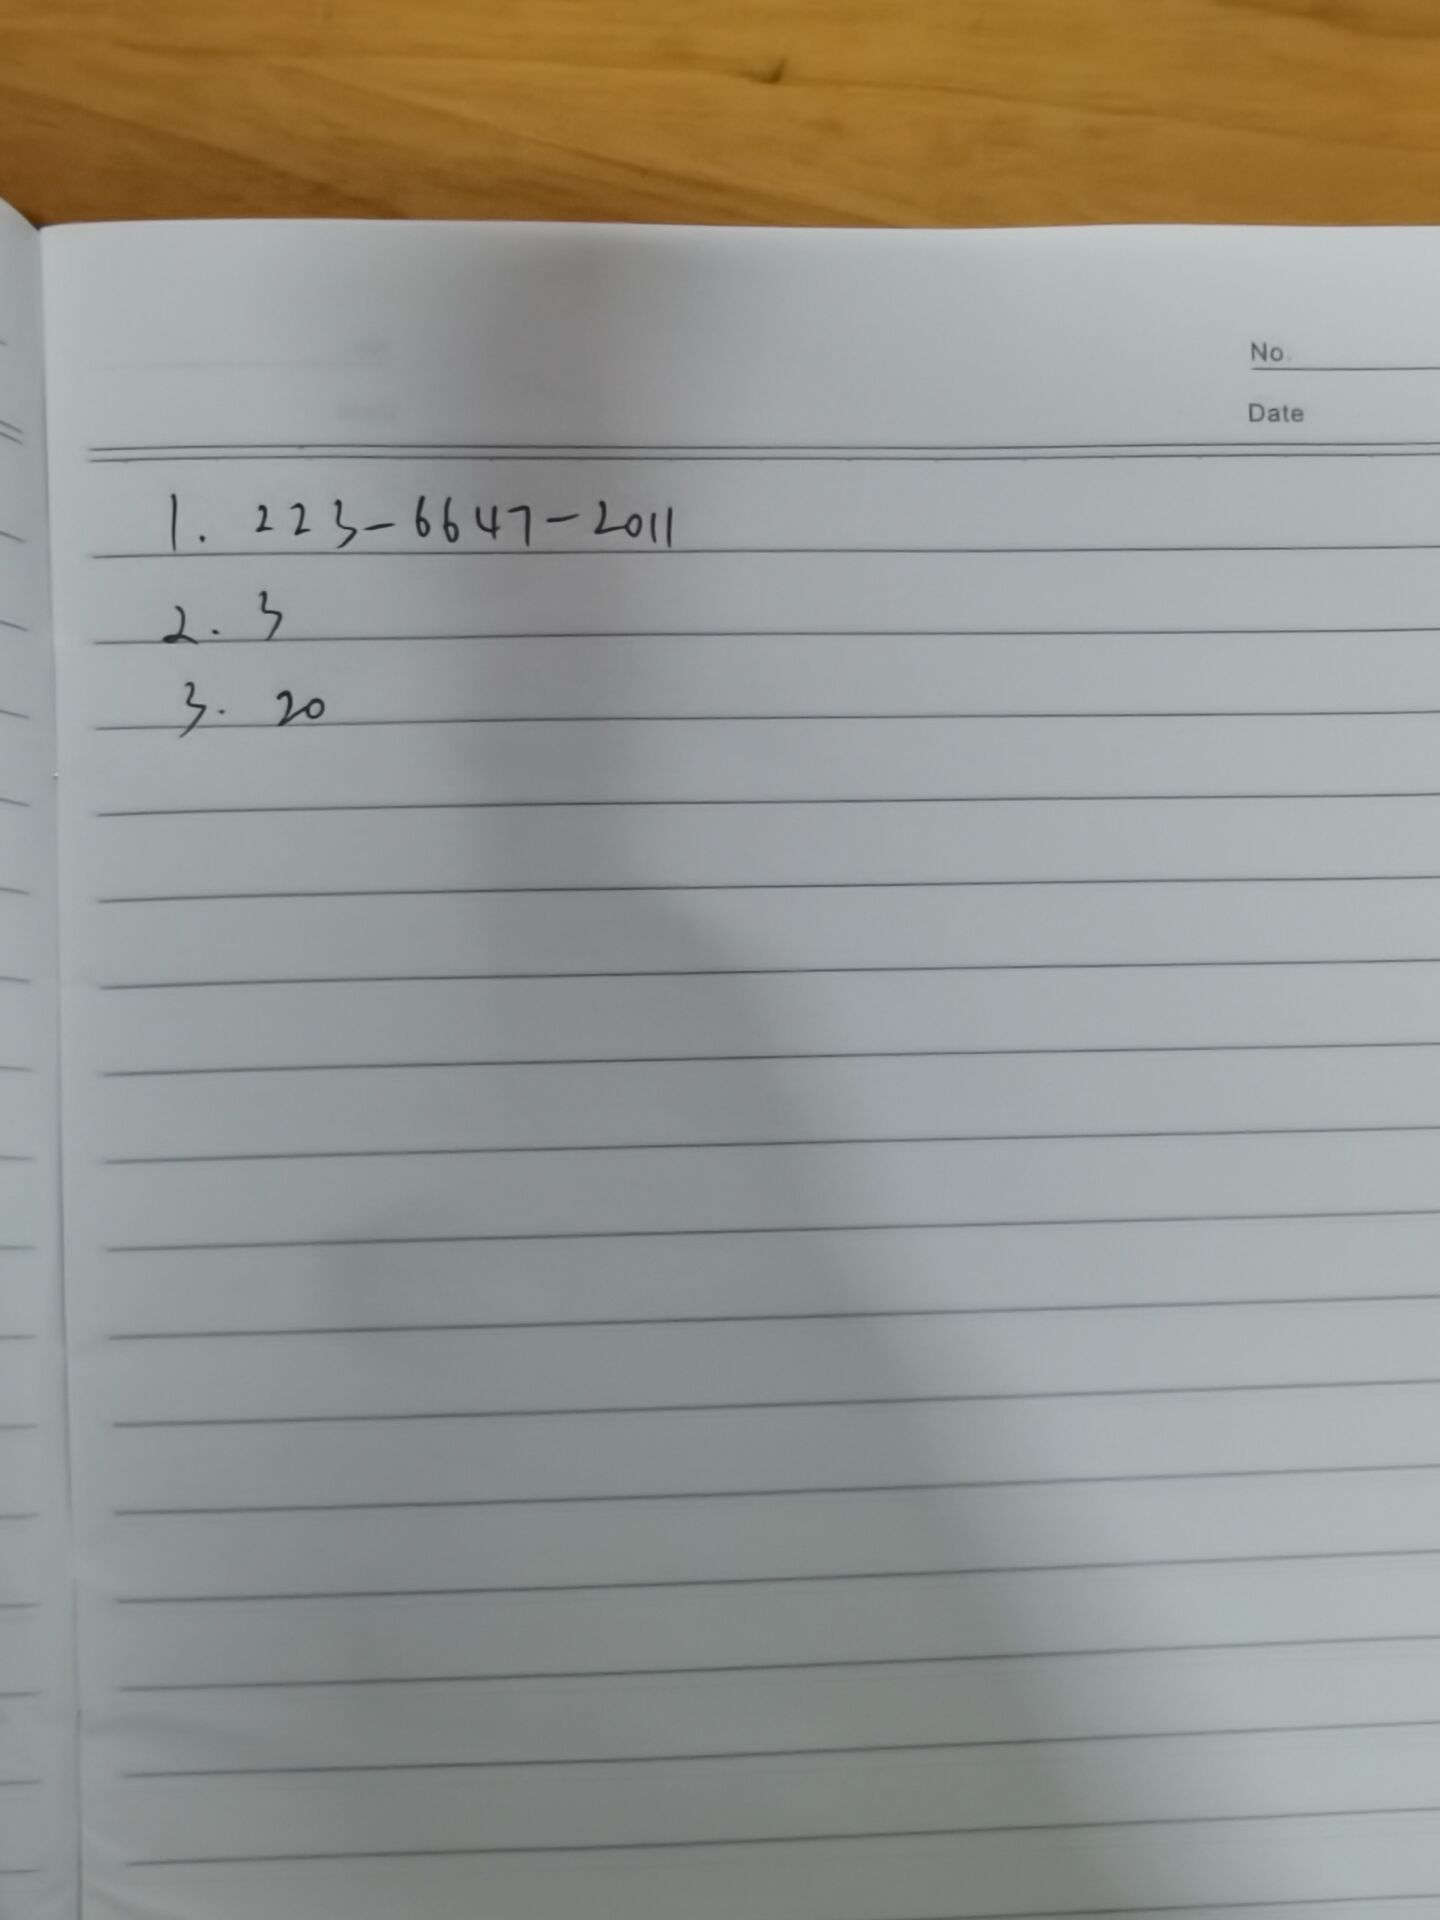 No.
Date
1. 223-6647-2011
2. 3
3. 20